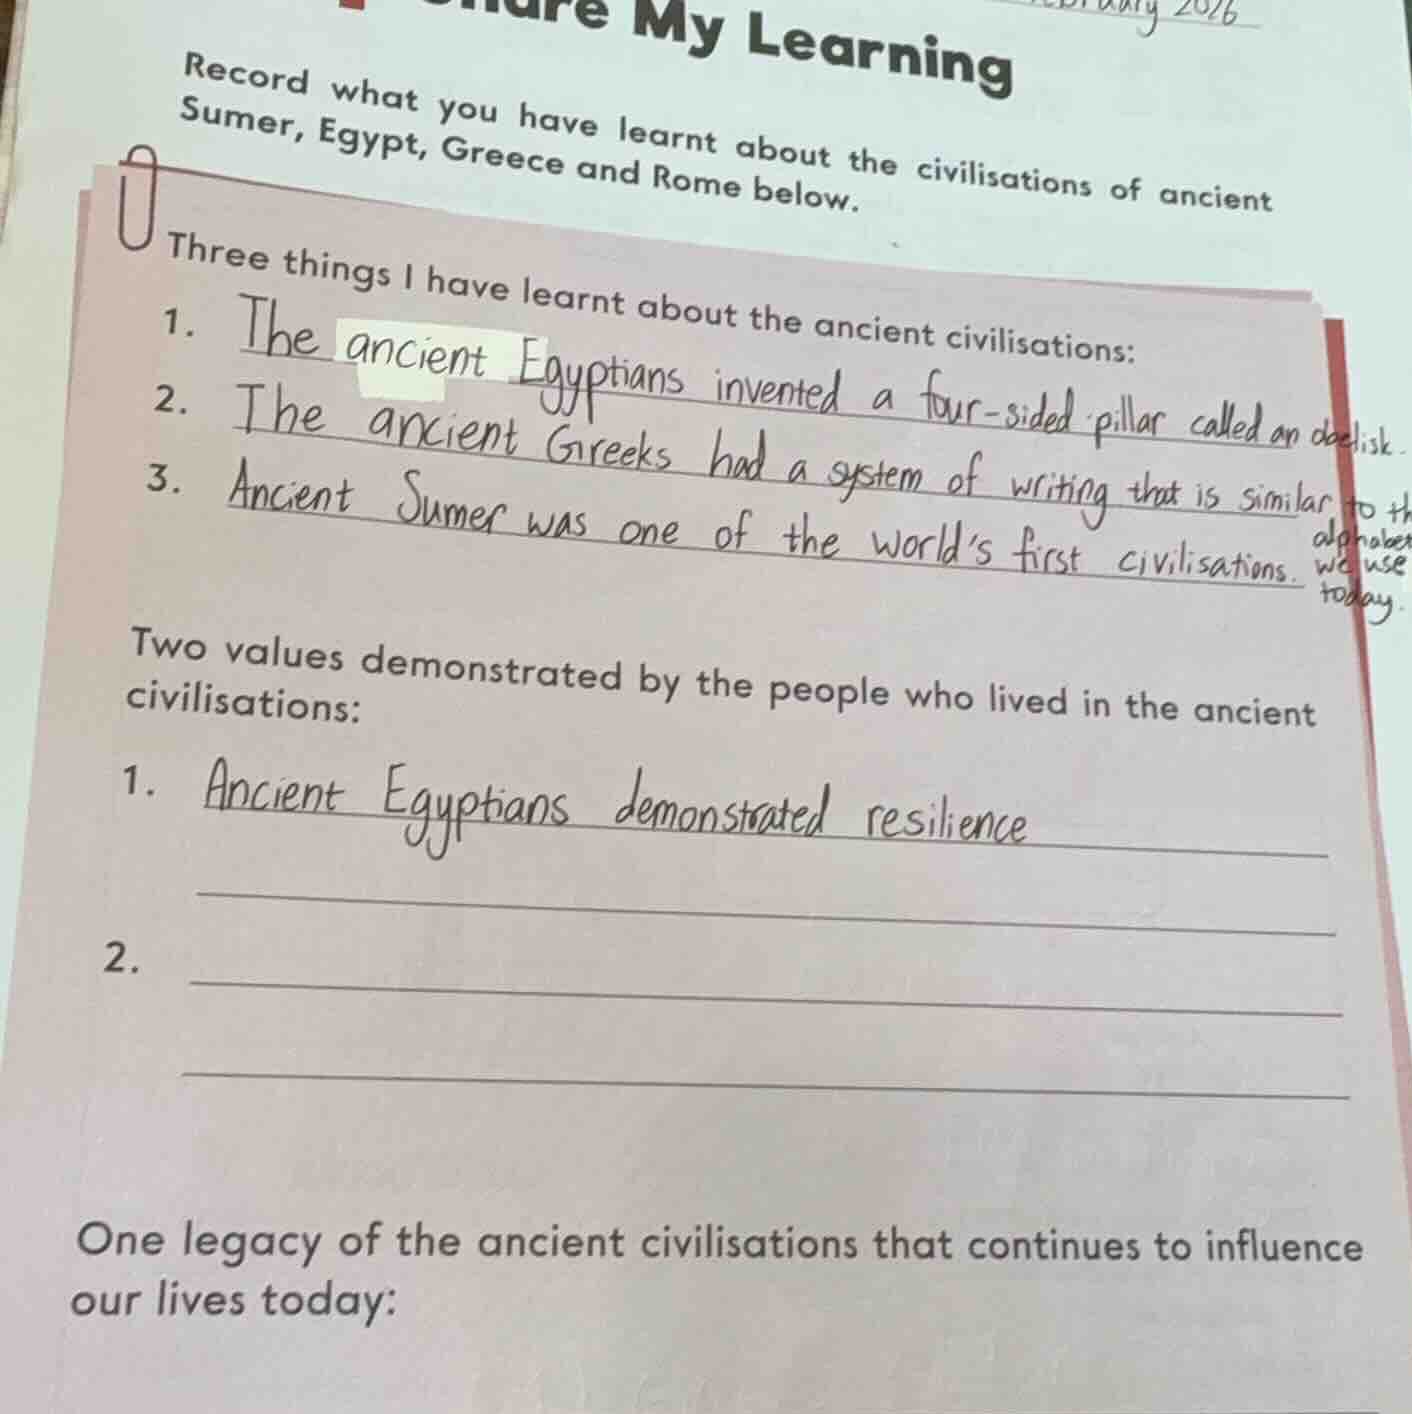 My Learning
2026
Record what you have learnt about the civilisations of ancient
Sumer, Egypt, Greece and Rome below.
Three things I have learnt about the ancient civilisations:
1. The ancient Egyptians invented a four-sided pillar called an obelisk.
2. The ancient Greeks had a system of writing that is similar to
alphabet
we use
today.
3. Ancient Sumer was one of the world's first civilisations.
Two values demonstrated by the people who lived in the ancient
civilisations:
1. Ancient Egyptians demonstrated resilience
2.
One legacy of the ancient civilisations that continues to influence
our lives today: